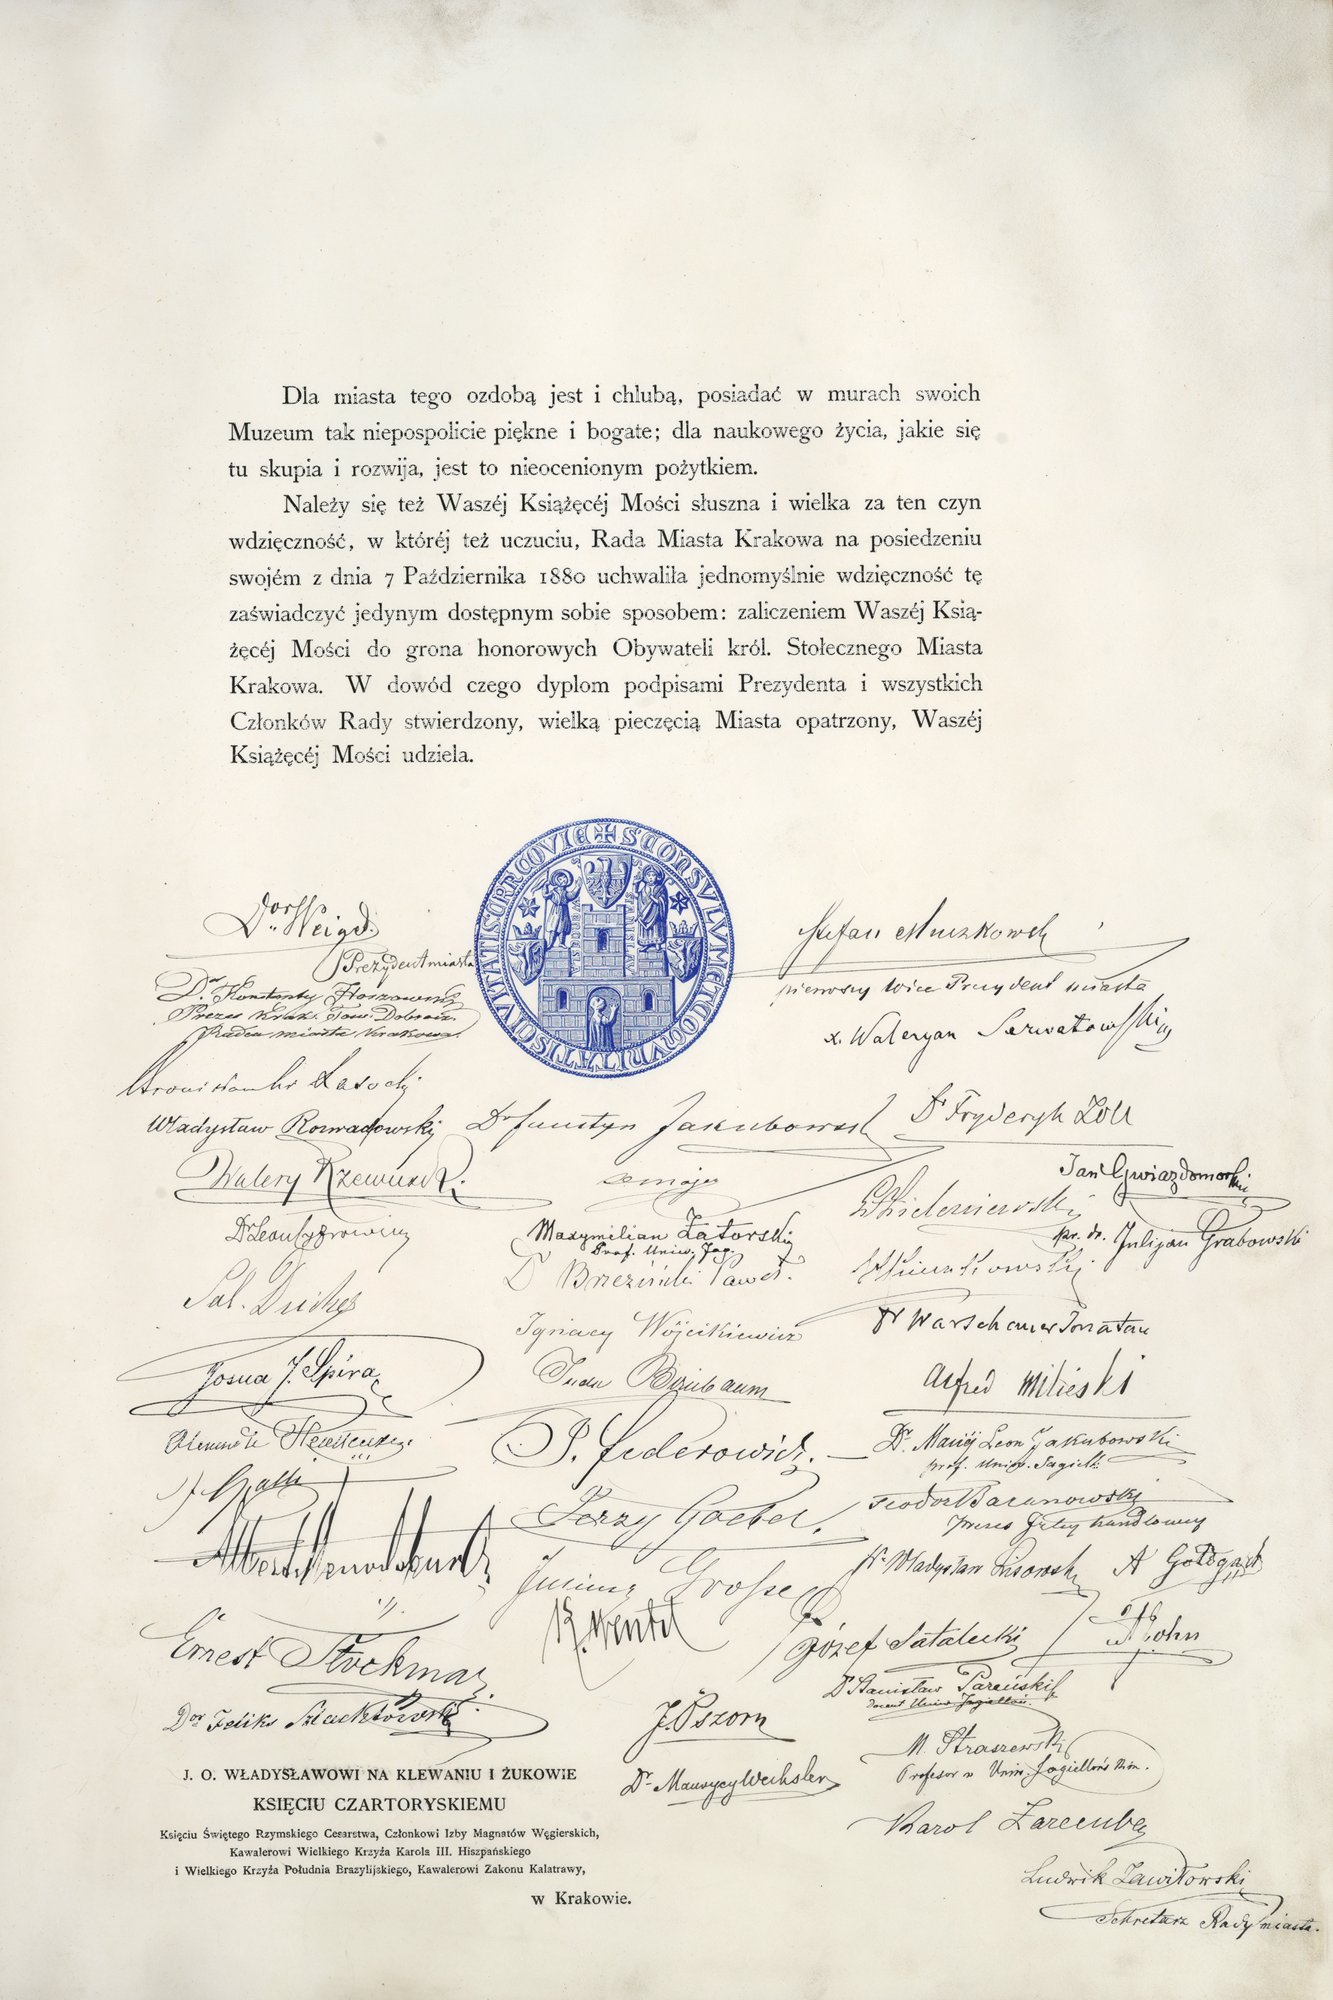 Dla miasta tego ozdobą jest i chlubą, posiadać w murach swoich
Muzeum tak niepospolicie piękne i bogate; dla naukowego życia, jakie się
tu skupia i rozwija, jest to nieocenionym pożytkiem.
Należy się też Waszéj Książęcéj Mości słuszna i wielka za ten czyn
wdzięczność, w któréj też uczuciu, Rada Miasta Krakowa na posiedzeniu
swojém z dnia 7 Października 1880 uchwaliła jednomyślnie wdzięczność tę
zaświadczyć jedynym dostępnym sobie sposobem: zaliczeniem Waszéj Ksią-
żęcéj Mości do grona honorowych Obywateli król. Stołecznego Miasta
Krakowa. W dowód czego dyplom podpisami Prezydenta i wszystkich
Członków Rady stwierdzony, wielką pieczęcią Miasta opatrzony, Waszéj
Książęcéj Mości udziela.
Weigel
Prezydent miasta
Dr. Konstanty Hoszowski
Prezes Krak. Tow. Dobrocz.
Radca miasta Krakowa
Stefan Muczkowski
pierwszy Vice Prezydent miasta
x. Waleryan Serwatowski
Bronisław hr Lasocki
Władysław Rozwadowski
Dr Faustyn Jakubowski
Dr Fryderyk Zoll
Walery Rzewuski
Jan Gwiazdomorski
Dr Leon Cyfrowicz
Maxymilian Zatorski
Prof. Uniw. Jag.
L Zieleniewski
Julijan Grabowski
Sal. Deiches
Dr Brzeziński Paweł.
Ignacy Wójcikiewicz
Dr Warschauer Jonatan
Josua J. Spira
Juda Birnbaum
Alfred Milieski
P. Federowicz
Dr. Maciej Leon Jakubowski
prof. Uniw. Jagiell.
Teodor Baranowski
Prezes Izby handlowej
Jerzy Goebel.
Albert Mendelsburg
Juliusz Grosse
Dr Władysław Lisowski
K. Wentzl
Józef Satalecki
Ernest Stockmar
Dr Stanisław Pareński
Docent Uniw. Jagielloń.
Dor Feliks Szlachtowski
J. Pszorn
M. Straszewski
Profesor w Uniw. Jagiellońskim.
Dr. Maurycy Wechsler
Karol Zaremba
J. O. WŁADYSŁAWOWI NA KLEWANIU I ŻUKOWIE
KSIĘCIU CZARTORYSKIEMU
Księciu Świętego Rzymskiego Cesarstwa, Członkowi Izby Magnatów Węgierskich,
Kawalerowi Wielkiego Krzyża Karola III. Hiszpańskiego
i Wielkiego Krzyża Południa Brazylijskiego, Kawalerowi Zakonu Kalatrawy,
w Krakowie.
Ludwik Zawiłowski
Sekretarz Rady miasta.